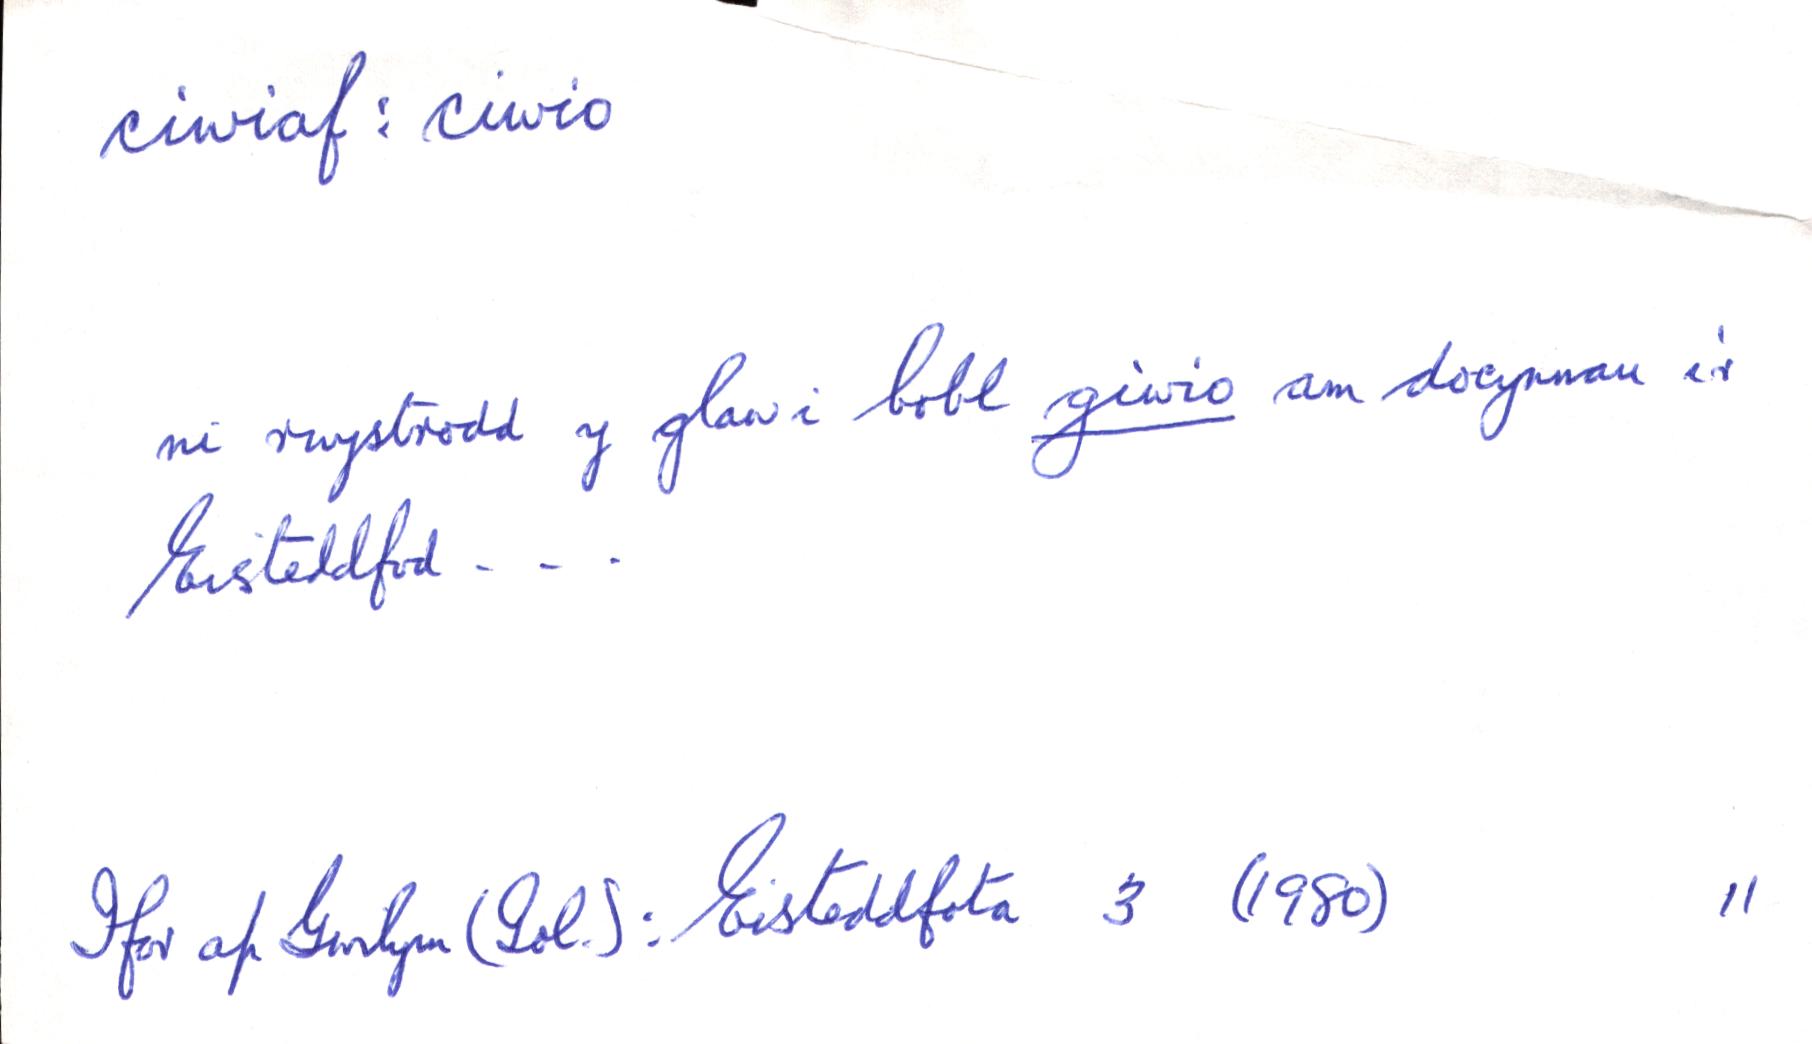 ciwiaf: ciwio
ni rwystrodd y glaw i bobl giwio am docynnau i'r
Eisteddfod - - -
Ifor ap Gwilym (Gol.): Eisteddfota 3 (1980) 11